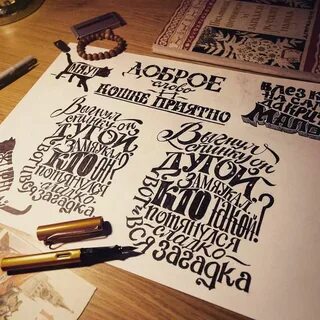 МЯУ
ДОБРОЕ
слово
И
КОШКЕ ПРИЯТНО
ВЛЕЗ К
Выгнул
спинку он
ДУГОЙ,
ЗАМЯУКАЛ
КТО
ПОТЯНУЛСЯ
СЛАДКО
ВОТ И ВСЯ
ЗАГАДКА
Выгнул
спинку он
ДУГОЙ,
ЗАМЯУКАЛ.
КТО такой?
ПОТЯНУЛСЯ
СЛАДКО-
ВОТ И ВСЯ
ЗАГАДКА